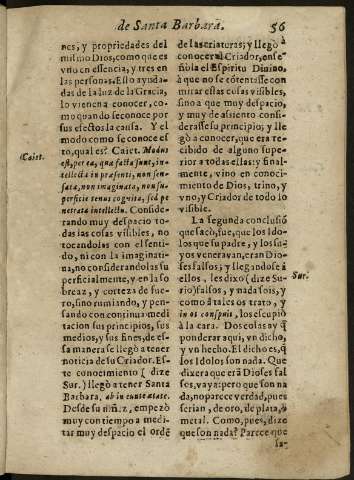 de Santa Barbara.
56
nes, y propiedades del
mismo Dios, como que es
vno en essencia, y tres en
las personas. Ello ayuda-
das de la luz de la Gracia,
lo vienen a conocer, co-
mo quando se conoce por
sus efectos la causa. Y el
modo como se conoce es-
to, qual es? Caiet. Modus
Caiet.
est, per ea, quæ facta sunt, in-
tellecta in præsenti, non sen-
sata, non imaginata, non su-
perficie tenus cognita, sed pe
netrata intellectu. Conside-
rando muy despacio to-
das las cosas visibles, no
tocandolas con el senti-
do, ni con la imaginati-
na, no considerandolas su
perficialmente, y en la so
breaz, y corteza de fue-
ra, sino rumiando, y pen-
sando con continua medi
tacion sus principios, sus
medios, y sus fines, de es-
sa manera se llegò a tener
noticia de su Criador. Es-
te conocimiento ( dize
Sur. ) llegò a tener Santa
Barbara. ab ineunte ætate.
Desde su niñez, empezò
muy con tiempo a medi-
tar muy despacio el ordē
de las criaturas; y llegò à
conocer al Criador, ense
ñòla el Espiritu Diuino,
à que no se cōtentasse con
mirar essas cosas visibles,
sino a que muy despacio,
y muy de assiento consi-
derasse su principio; y lle
gò a conocer, que era re-
cibido de alguno supe-
rior a todas ellas: y final-
mente, vino en conoci-
miento de Dios, trino, y
vno, y Criador de todo lo
visible.
La segunda conclusiō
que sacò, fue, que los Ido-
los que su padre, y los su-
yos veneravan, eran Dio-
ses falsos; y llegandose à
ellos, les dixo ( dize Su-
Sur.
rio) falsos, y nada sois, y
como à tales os trato, y
in os conspuit, los escupiò
à la cara. Dos cosas ay q̃
ponderar aqui, vn dicho,
y vn hecho. El dicho es, q̃
los Idolos son nada. Que
dixera que erā Dioses fal
ses, vaya: pero que son na
da, no parece verdad, pues
serian, de oro, de plata, ò
metal. Como, pues, dize
que son nada? Parece que